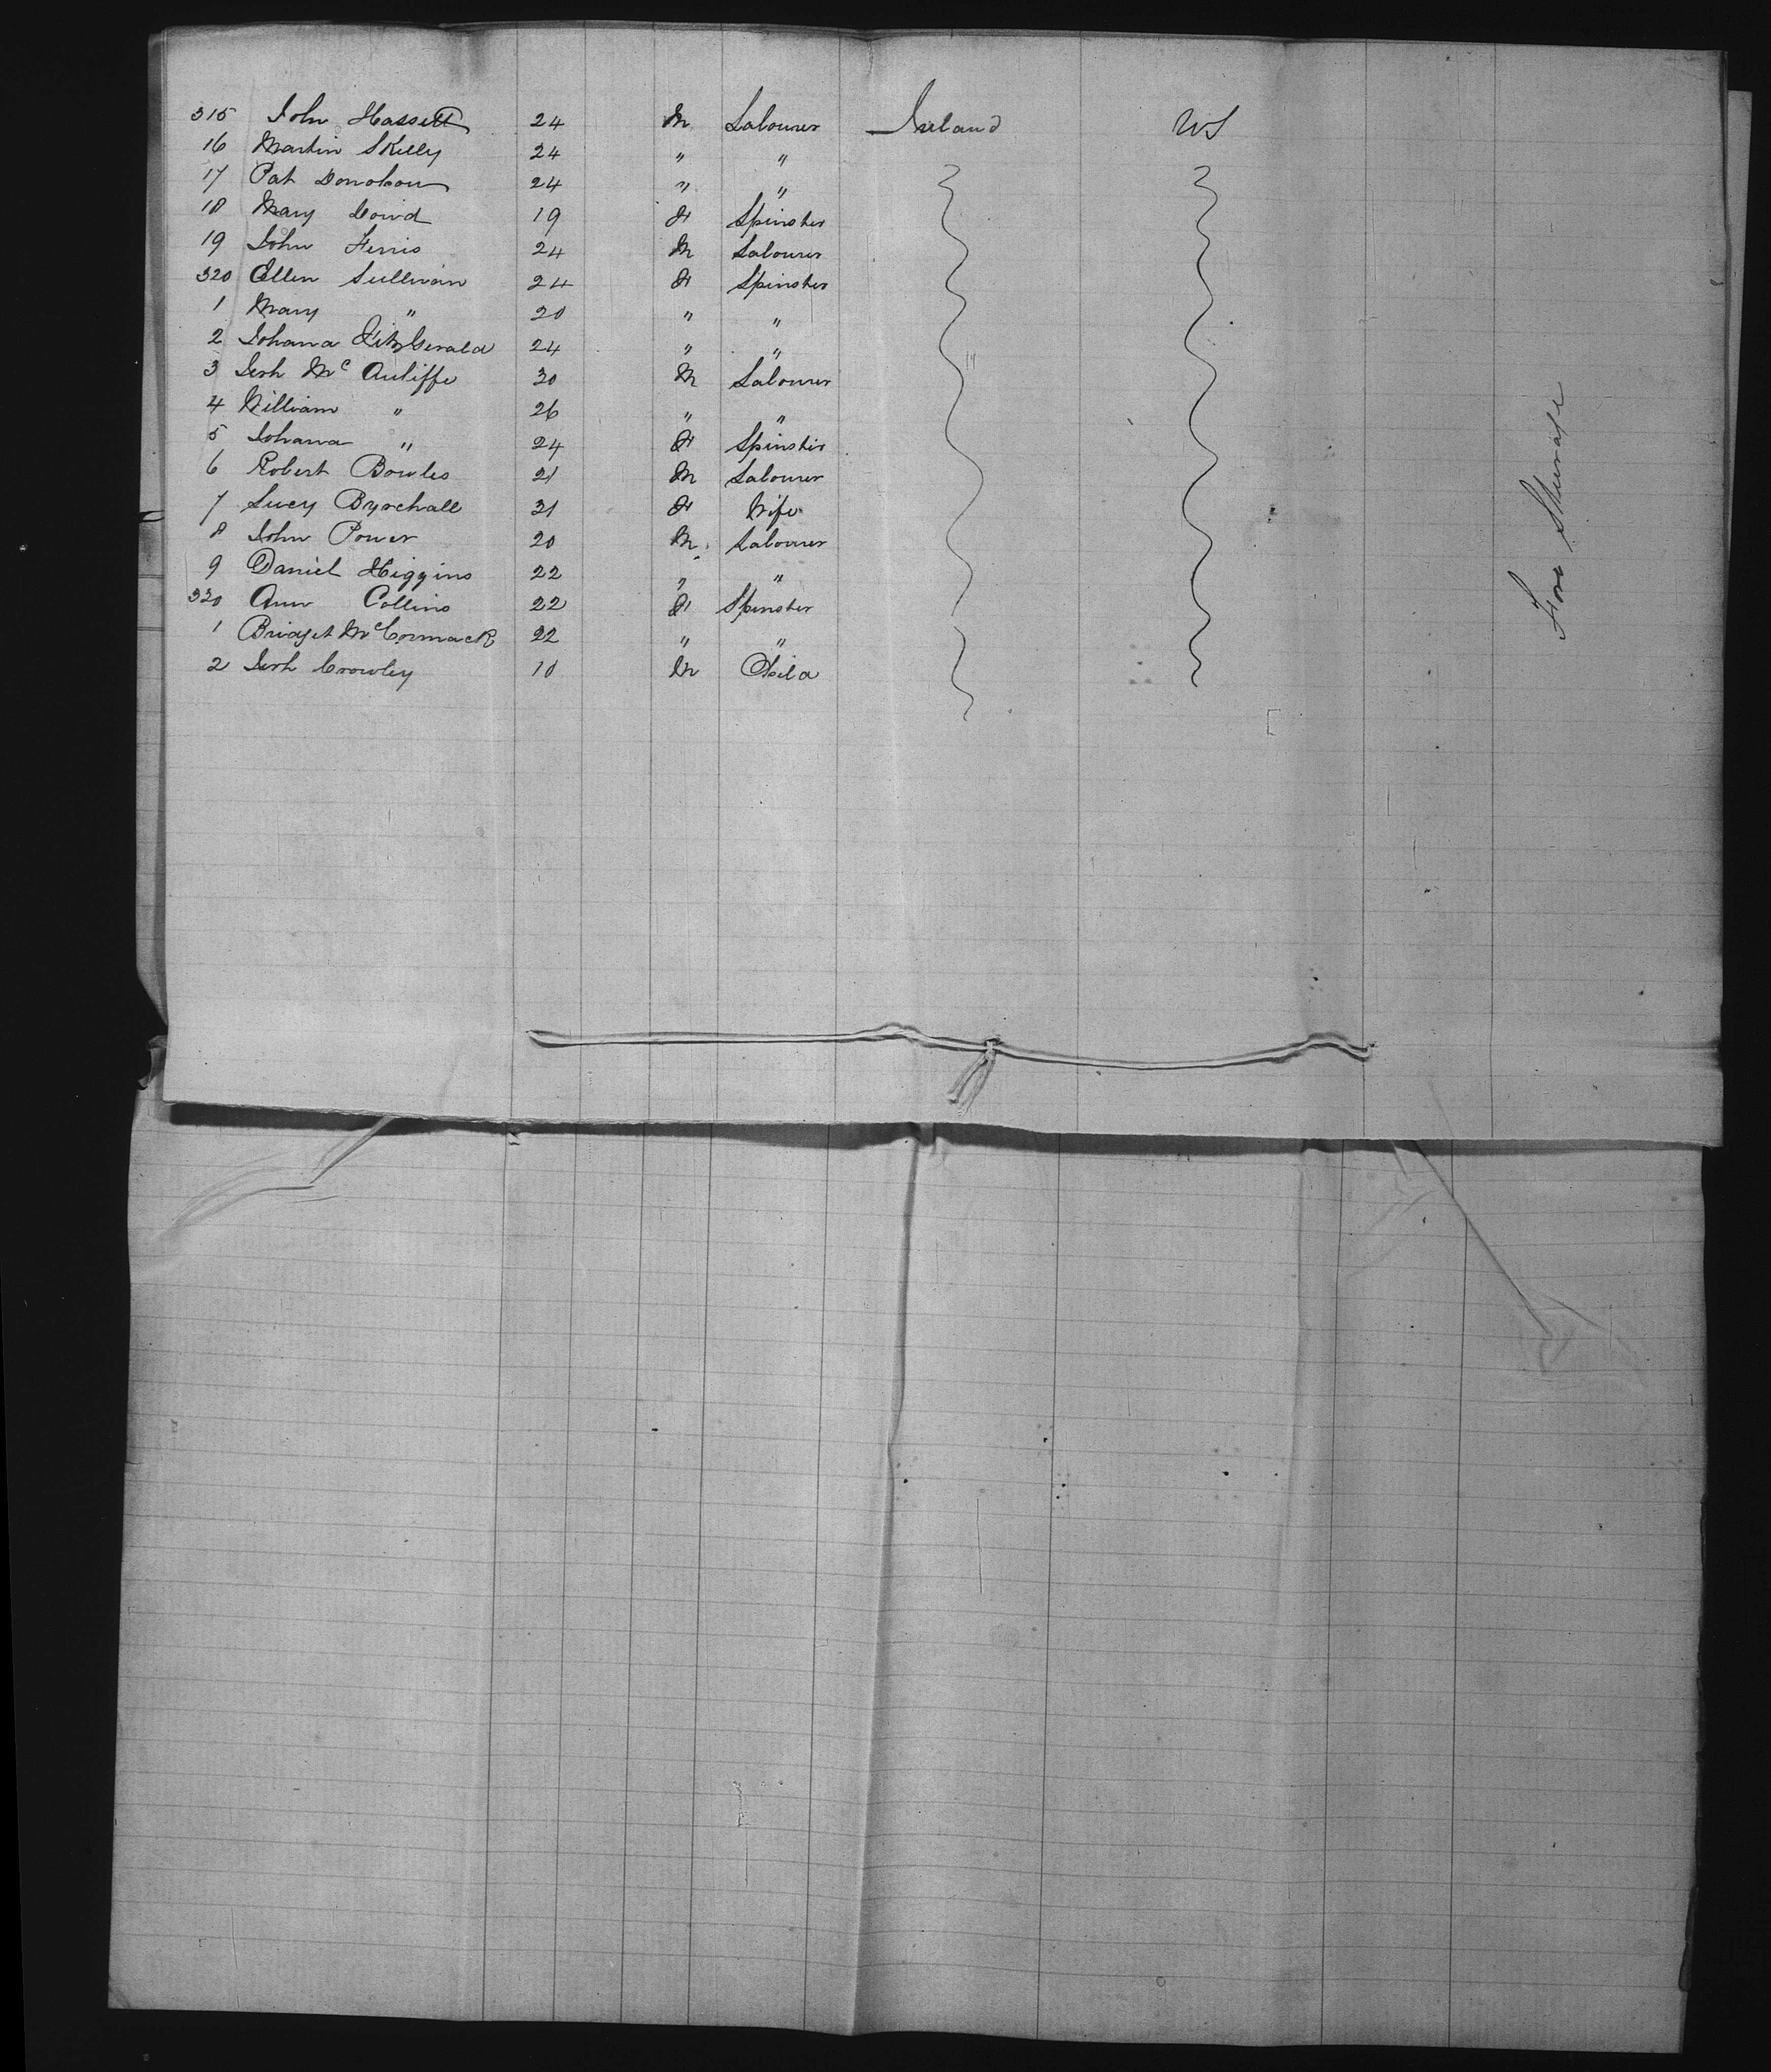 315 John Hassett 24 M Labourer Ireland US
16 Martin Skelly 24 " "
17 Pat Donohou 24 " "
18 Mary 19 F Spinster
19 John Ferris 24 M Labourer
320 Ellen Sullivan 24 F Spinster
1 Mary " 20 " "
2 Johana FitzGerald 24 " "
3 Jerh McAuliffe 30 M Labourer
4 William " 26 " "
5 Johana " 24 F Spinster
6 Robert Bowles 21 M Labourer
7 Lucy Byrchall 31 F Wife
8 John Power 20 M Labourer
9 Daniel Higgins 22 " "
330 Ann Collins 22 F Spinster
1 Bridget McCormack 22 " "
2 Jerh Crowley 10 M Child
Fore Steerage